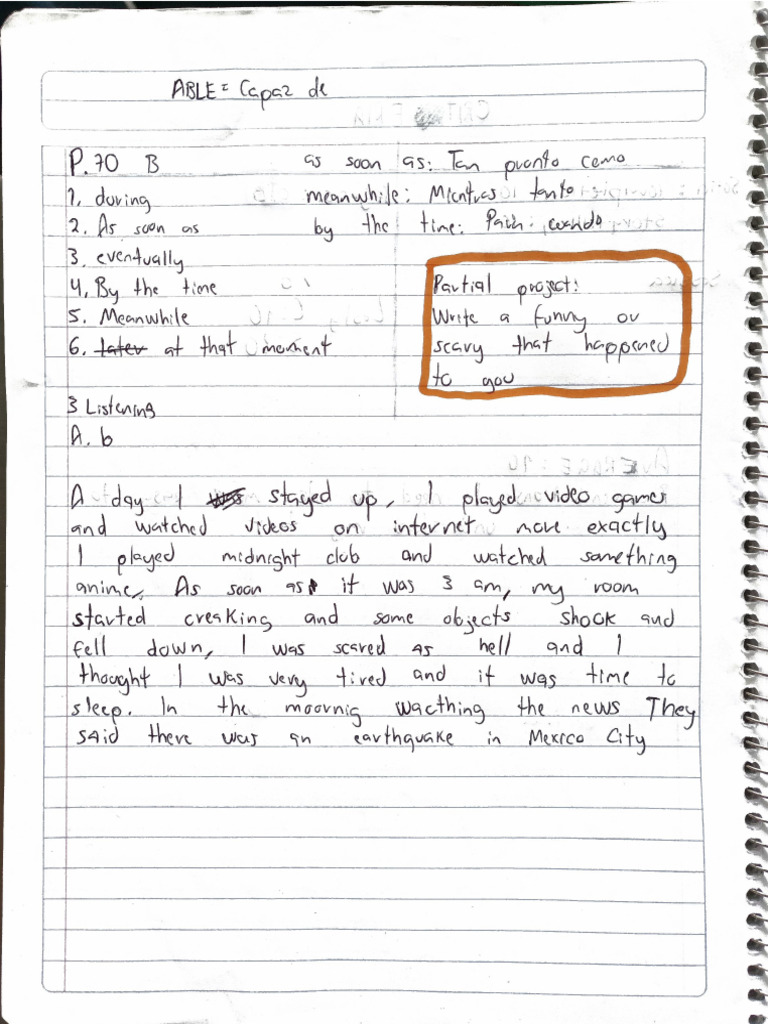 ABLE = Capaz de
P. 70 B
as soon as: Tan pronto como
1. during
meanwhile: Mientras tanto
2. As soon as
by the time: Para: cuando
3. eventually
4. By the time
5. Meanwhile
6. later at that moment
Partial project:
Write a funny or
scary that happened
to you
3 Listening
A. b
A day I was stayed up, I played video games
and watched videos on internet more exactly
I played midnight club and watched something
anime, As soon as it was 3 am, my room
started creaking and some objects shock and
fell down, I was scared as hell and I
thought I was very tired and it was time to
sleep. In the moornig wacthing the news They
said there was an earthquake in Mexico City